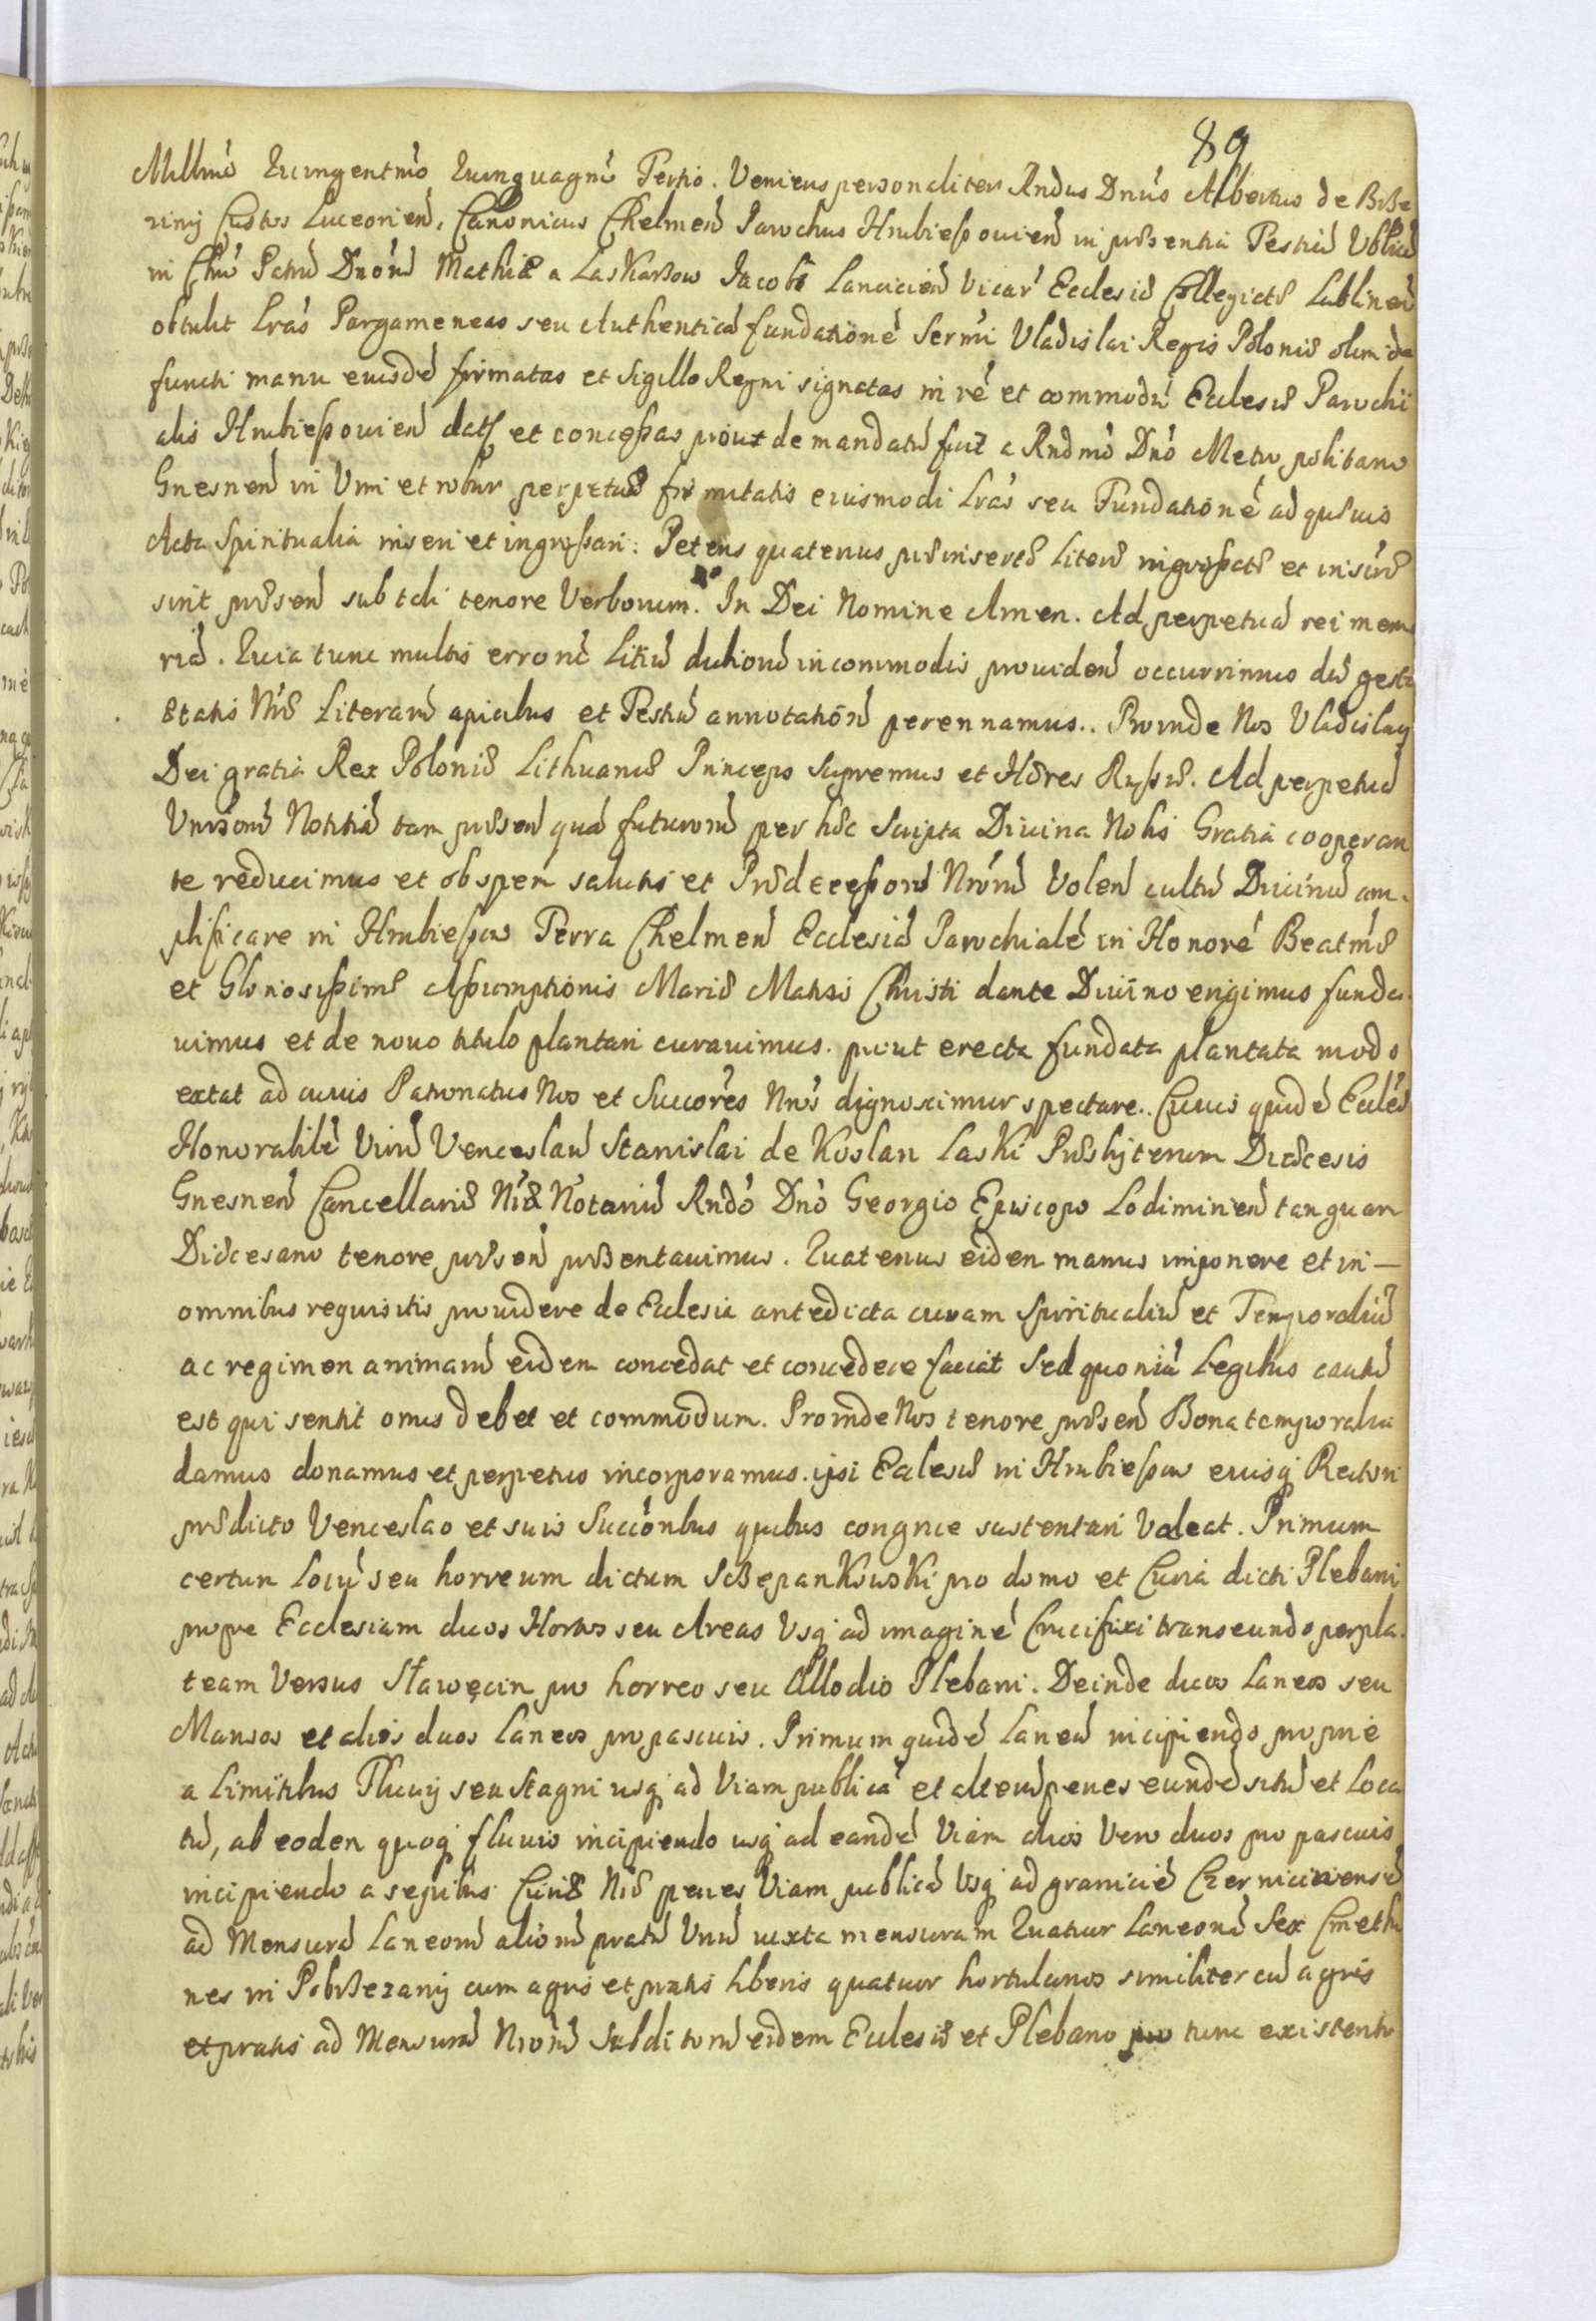 89
Millmo Quingentmo Quinquagmo Tertio. Veniens personaliter Rndus Dnus Albertus de Brze
ziny Custos Luceorien, Canonicus Chelmen Parochus Hrubieszovien in præsentia Testiu Vblicu
in Chro Patru Dnoru Mathiæ a Laskarzow Jacobi Lancicien Vicar Ecclesiæ Collegiatæ Lublinen
obtulit Lras Pargameneas seu Authenticã fundationẽ Sermi Vladislai Regis Poloniæ olim de
functi manu eiusdẽ firmatas et Sigillo Regni signatas in rẽ et commodũ Ecclesiæ Parochi
alis Hrubieszovien datas et concessas prout demandatũ fuit a Rndmo Dno Metropolitano
Gnesnen in Vim et robur perpetuæ firmitatis eiusmodi Lras seu Fundationẽ ad quævis
Acta Spiritualia inseri et ingrossari. Petens quatenus præinsertæ Literæ ingrossatæ et insertæ
sint præsen sub tali tenore Verborum. In Dei Nomine Amen. Ad perpetuã rei memo
riã. Quia tunc multis errorũ Litiũ dubiorũ incommodis providen occurrimus dũ gesta
ætatis Nræ Literarũ apicibus et Testiũ annotatiõe perennamus.. Proinde Nos Vladislaus
Dei gratia Rex Poloniæ Lithuaniæ Princeps Supremus et Hæres Russiæ. Ad perpetuã
Vnirsorũ Notitiã tam præsen quã futurorũ per hæc Scripta Divina Nobis Gratia cooperan
te reducimus et ob spem salutis et Prædecessorũ Nrorũ Volen cultũ Divinũ am-
plificare in Hrubieszow Terra Chelmen Ecclesiã Parochialẽ in Honorẽ Beatmæ
et Gloriosissimæ Assumptionis Mariæ Matris Christi dante Divino erigimus funda-
uimus et de nouo titulo plantari curauimus. prout erecta fundata plantata modo
extat ad cuius Patronatus Nos et Succores Nros dignoscimur spectare. Cuius quidẽ Ecclæ
Honorabilẽ Virũ Venceslaũ Stanislai de Koslan Laski Præsbyterum Diæcesis
Gnesnen Cancellariæ Nræ Notariũ Rndo Dno Georgio Episcopo Lodimirien tanquam
Diæcesano tenore præsen præsentauimus. Quatenus eidem manus imponere et in—
omnibus requisitis prouidere de Ecclesia antedicta curam Spiritualiũ et Temporaliũ
ac regimen animarũ eidem concedat et concedere faciat Sed quoniã Legibus cautũ
est qui sentit onus debet et commodum. Proinde Nos tenore præsen Bona temporalia
damus donamus et perpetuo incorporamus. ipsi Ecclesiæ in Hrubieszow eiusq Rectori
prædicto Venceslao et suis Succoribus quibus congrue sustentari Valeat. Primum
certum Locũ seu horreum dictum Sczepankowski pro domo et Curia dicti Plebani
prope Ecclesiam duos Hortos seu Areas Vsq ad imaginẽ Crucifixi transeundo per pla-
team Versus Sławęcin pro horreo seu Allodio Plebani. Deinde duos Laneos seu
Mansos et alios duos Laneos pro pascuis. Primum quidẽ Laneũ incipiendo proprie
a Limitibus Fluuij seu Stagni usq ad Viam publicã et alterũ penes eundẽ situ et Loca
tũ, ab eodem quoq fluuio incipiendo usq ad eandẽ Viam alios Vero duos pro pascuis
incipiendo a sepibus Curiæ Nræ penes Viam publicã Vsq ad graniciẽ Czerniciniensẽ
ad Mensurã Laneorũ aliorũ pratũ Vnũ iuxta mensuram Quatuor Laneorũ Sex Cmetho
nes in Pobrzezany cum agris et pratis liberis quatuor hortulanos similiter cũ agris
et pratis ad Mensurã Nrorũ Subditorũ eidem Ecclesiæ et Plebano pro tunc existenti